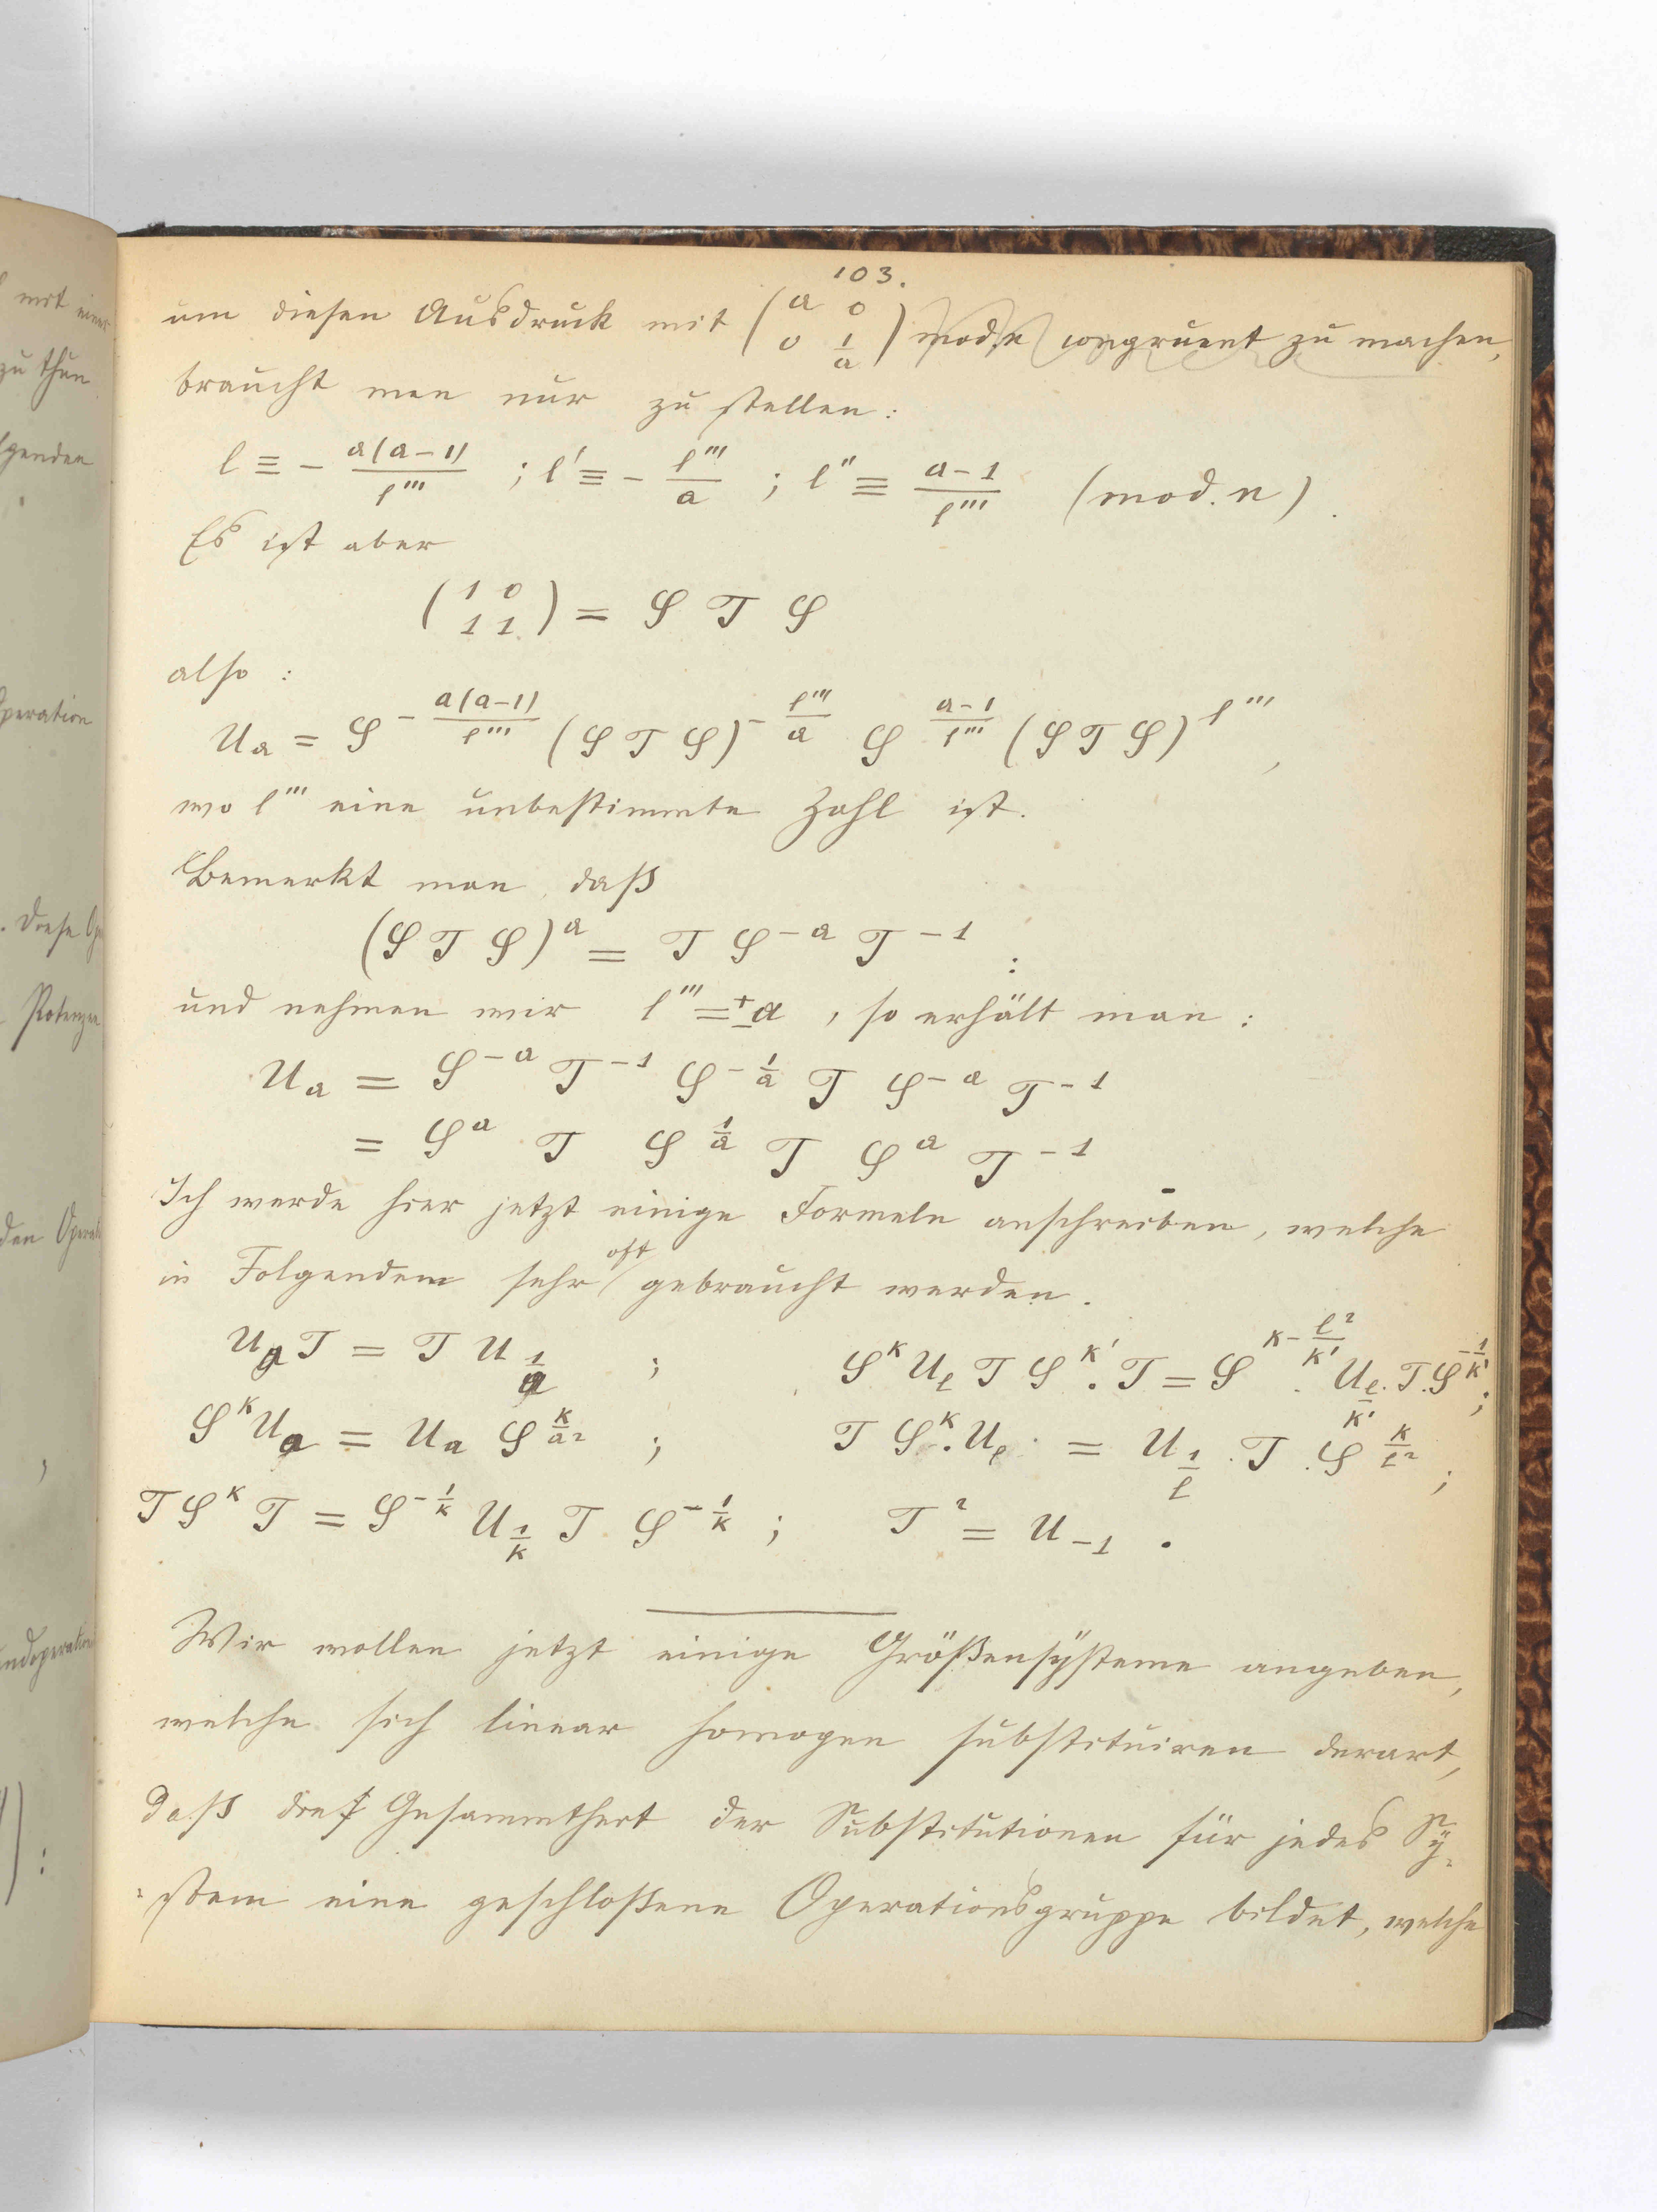 103.
um diesen Ausdruck mit (a 0 / 0 1/a) mod. n congruent zu machen,
braucht man nur zu stellen:
l ≡ − a(a−1)/l''' ; l' ≡ − l'''/a ; l'' ≡ (a−1)/l''' (mod. n).
Es ist aber
(1 0 / 1 1) = S T S
also:
U_a = S^{− a(a−1)/l'''} (S T S)^{− l'''/a} S^{(a−1)/l'''} (S T S)^{l'''},
wo l''' eine unbestimmte Zahl ist.
Bemerkt man, daß
(S T S)^a = T S^{−a} T^{−1} :
und nehmen wir l''' = ± a, so erhält man:
U_a = S^{−a} T^{−1} S^{−1/a} T S^{−a} T^{−1}
= S^a T S^{1/a} T S^a T^{−1}
Ich werde hier jetzt einige Formeln anschreiben, welche
in Folgendem sehr oft gebraucht werden.
U_a T = T U_{1/a} ; S^k U_l T S^{k'}. T = S^{k − l²/k'} . U_{l/k'}. T. S^{−1/k'};
S^k U_a = U_a S^{k/a²} ; T S^k. U_l = U_{1/l} . T . S^{k/l²} ;
T S^k T = S^{−1/k} U_{1/k} T S^{−1/k} ; T² = U_{−1} .
Wir wollen jetzt einige Größensÿsteme angeben,
welche sich linear homogen substituiren derart,
daß die Gesammtheit der Substitutionen für jedes Sÿ-
-stem eine geschloßene Operationsgruppe bildet, welche
mit einer
zu thun
lgenden
Operation
. Diese Op
Potenzen
den Operati
ndoperation
):